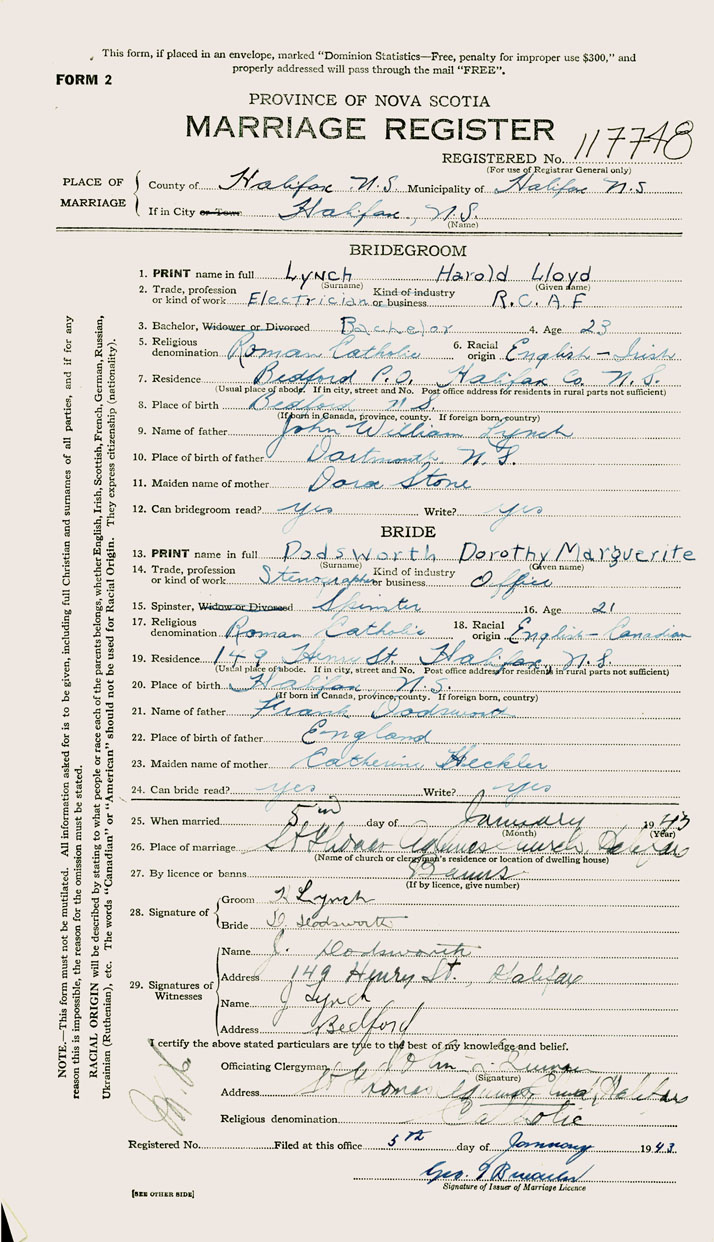 This form, if placed in an envelope, marked "Dominion Statistics—Free, penalty for improper use $300," and
properly addressed will pass through the mail "FREE".
FORM 2
PROVINCE OF NOVA SCOTIA
MARRIAGE REGISTER
REGISTERED No. 117748
(For use of Registrar General only)
PLACE OF MARRIAGE
County of Halifax N.S. Municipality of Halifax N.S
If in City or Town Halifax, N.S.
(Name)
BRIDEGROOM
1. PRINT name in full Lynch Harold Lloyd
(Surname) (Given name)
2. Trade, profession or kind of work Electrician Kind of industry or business R.C.A.F
3. Bachelor, Widower or Divorced Bachelor 4. Age 23
5. Religious denomination Roman Catholic 6. Racial origin English - Irish
7. Residence Bedford P.O. Halifax Co. N.S.
(Usual place of abode. If in city, street and No. Post office address for residents in rural parts not sufficient)
8. Place of birth Bedford N.S.
(If born in Canada, province, county. If foreign born, country)
9. Name of father John William Lynch
10. Place of birth of father Dartmouth N.S.
11. Maiden name of mother Dora Stone
12. Can bridegroom read? yes Write? yes
BRIDE
13. PRINT name in full Dodsworth Dorothy Marguerite
(Surname) (Given name)
14. Trade, profession or kind of work Stenographer Kind of industry or business Office
15. Spinster, Widow or Divorced Spinster 16. Age 21
17. Religious denomination Roman Catholic 18. Racial origin English - Canadian
19. Residence 149 Henry St. Halifax, N.S.
(Usual place of abode. If in city, street and No. Post office address for residents in rural parts not sufficient)
20. Place of birth Halifax N.S.
(If born in Canada, province, county. If foreign born, country)
21. Name of father Frank Dodsworth
22. Place of birth of father England
23. Maiden name of mother Catherine Heckler
24. Can bride read? yes Write? yes
25. When married 5 day of January 1943
(Month) (Year)
26. Place of marriage St Thomas Aquinas Church Halifax
(Name of church or clergyman's residence or location of dwelling house)
27. By licence or banns Banns
(If by licence, give number)
28. Signature of
Groom Lynch
Bride D. Dodsworth
29. Signatures of Witnesses
Name J. Dodsworth
Address 149 Henry St., Halifax
Name J Lynch
Address Bedford
I certify the above stated particulars are true to the best of my knowledge and belief.
Officiating Clergyman John
(Signature)
Address St Thomas Aquinas Halifax
Religious denomination Catholic
Registered No. Filed at this office 5th day of January 1943
Geo.
Signature of Issuer of Marriage Licence
[SEE OTHER SIDE]
NOTE.—This form must not be mutilated. All information asked for is to be given, including full Christian and surnames of all parties, and if for any
reason this is impossible, the reason for the omission must be stated.
RACIAL ORIGIN will be described by stating to what people or race each of the parents belongs, whether English, Irish, Scottish, French, German, Russian,
Ukrainian (Ruthenian), etc. The words "Canadian" or "American" should not be used for Racial Origin. They express citizenship (nationality).